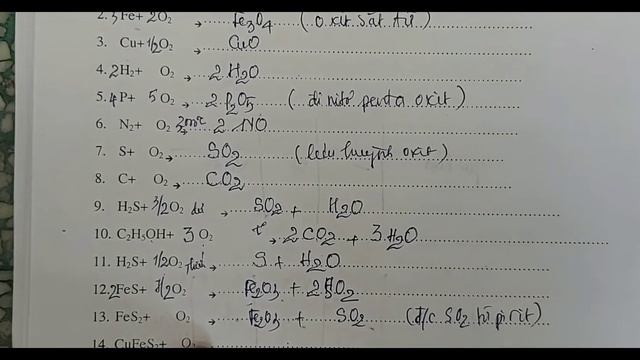 2. 3Fe+ 2O2 → Fe3O4 (Oxit sắt từ)
3. Cu+ 1/2O2 → CuO
4. 2H2+ O2 → 2H2O
5. 4P+ 5O2 → 2P2O5 (đi nitơ penta oxit)
6. N2+ O2 → 2NO
7. S+ O2 → SO2 (lưu huỳnh oxit)
8. C+ O2 → CO2
9. H2S+ 3/2O2 → SO2 + H2O
10. C2H5OH+ 3O2 → 2CO2 + 3H2O
11. H2S+ 1/2O2 → S + H2O
12. 2FeS+ O2 → Fe2O3 +
13. FeS2+ O2 → Fe2O3 + SO2 (đ/c SO2 từ pirit)
14. CuFeS2+ O2